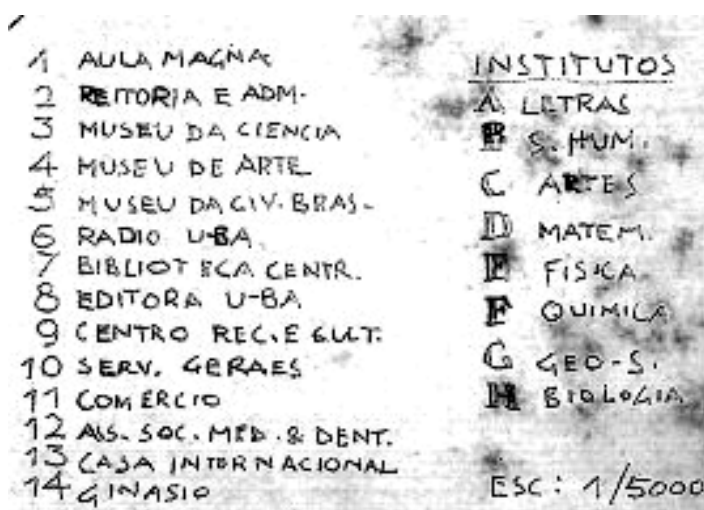 1 AULA MAGNA
2 REITORIA E ADM.
3 MUSEU DA CIENCIA
4 MUSEU DE ARTE
5 MUSEU DA CIV. BRAS.
6 RADIO U-BA.
7 BIBLIOTECA CENTR.
8 EDITORA U-BA
9 CENTRO REC. E CULT.
10 SERV. GERAES
11 COMERCIO
12 ASS. SOC. MED. & DENT.
13 CASA INTERNACIONAL
14 GINASIO
INSTITUTOS
A LETRAS
B S. HUM.
C ARTES
D MATEM.
E FISICA
F QUIMICA
G GEO-S.
H BIOLOGIA
ESC: 1/5000